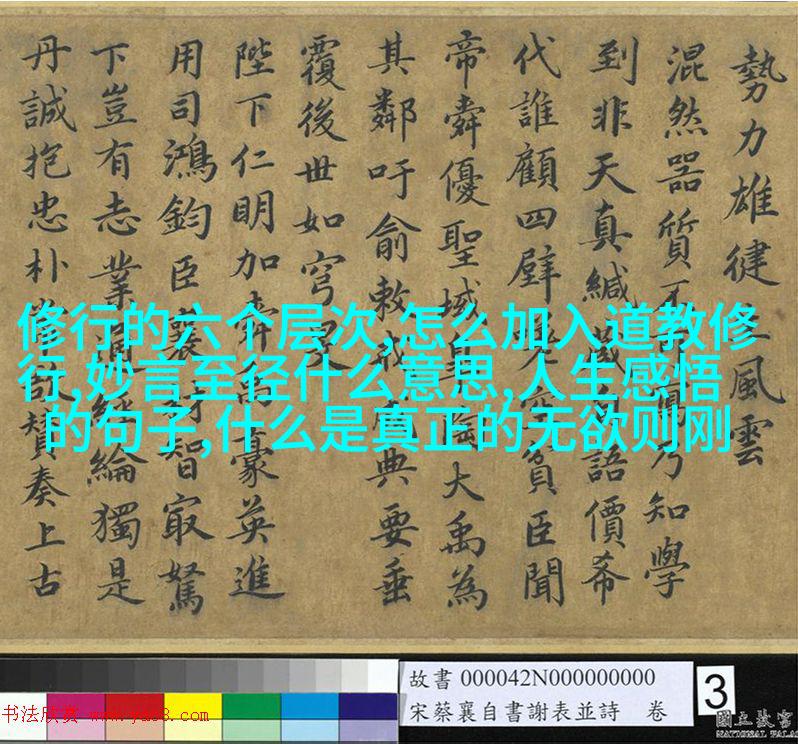 勢力雄徤上風雲
混然器質不
乃知學
到非天真緘藏
語價希
代誰顧四壁
空貧臣聞
帝舜優聖域
大禹為
其鄰吁俞敕戒
典要垂
覆後世如穹
陛下仁明加舜禹豪英進
用司鴻鈞臣襄
智冣駑
下豈有志業
經綸獨是
丹誠抱忠朴
奏上古
修行的六个层次,怎么加入道教修
行,妙言至径什么意思,人生感悟
的句子,什么是真正的无欲则刚
故書 000042N000000000
宋蔡襄自書謝表並詩 卷
3
书法欣赏 www.yac8.com
國立故宮
NATIONAL PALAC